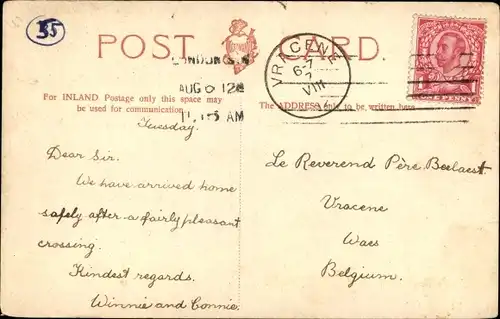 35
POST CARD.
VRACENE
6-7
VIII
AUG 6 12
11.15 AM
For INLAND Postage only this space may
be used for communication.
The ADDRESS only to be written here.
Tuesday.
Dear Sir.
We have arrived home
safely after a fairly pleasant
crossing.
Kindest regards.
Winnie and Connie.
Le Reverend Père Beelaest.
Vracene
Waes
Belgium.